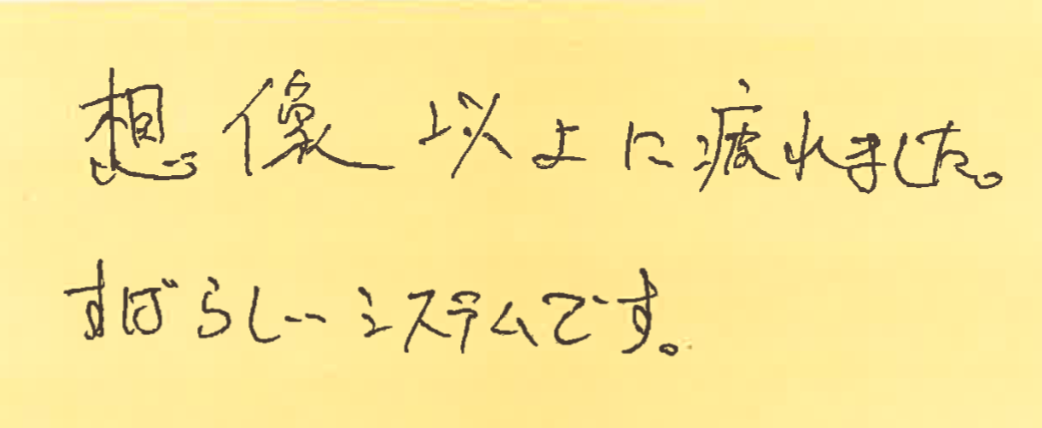 想像以上に疲れました。
すばらしいシステムです。